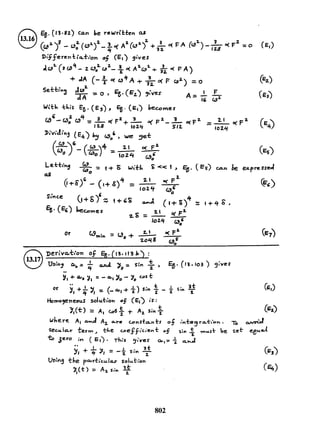 13.16
Eg. (13.82) can be rewritten as
(ω²)³ - ω₀² (ω²)² - 3/4 α A² (ω²)² + 3/32 α FA (ω²) - 3/128 α F² = 0 (E1)
Differentiation of (E1) gives
dω² (3 ω⁴ - 2 ω₀² ω² - 3/2 α A² ω² + 3/32 α FA)
+ dA (- 3/2 α ω⁴ A + 3/32 α F ω²) = 0 (E2)
Setting dω²/dA = 0 , Eg. (E2) gives A = 1/16 F/ω² (E3)
With this Eg. (E3), Eg. (E1) becomes
ω⁶ - ω₀² ω⁴ = 3/128 α F² + 3/1024 α F² - 3/512 α F² = 21/1024 α F² (E4)
Dividing (E4) by ω₀⁶, we get
(ω/ω₀)⁶ - (ω/ω₀)⁴ = 21/1024 α F²/ω₀⁶ (E5)
Letting ω/ω₀ = 1 + δ with δ << 1, Eg. (E5) can be expressed
as
(1+δ)⁶ - (1+δ)⁴ = 21/1024 α F²/ω₀⁶ (E6)
Since (1+δ)⁶ ≃ 1 + 6δ and (1+δ)⁴ ≃ 1 + 4δ,
Eg. (E6) becomes
2δ = 21/1024 α F²/ω₀⁶
or ω_min = ω₀ + 21/2048 α F²/ω₀⁵ (E7)
13.17
Derivation of Eg. (13.113 b) :
Using α₀ = 1/4 and y₀ = sin t/2, Eg. (13.103) gives
ÿ₁ + α₀ y₁ = - α₁ y₀ - y₀ cos t
or ÿ₁ + 1/4 y₁ = (- α₁ + 1/2) sin t/2 - 1/2 sin 3t/2 (E1)
Homogeneous solution of (E1) is:
y₁(t) = A₁ cos t/2 + A₂ sin t/2 (E2)
where A₁ and A₂ are constants of integration. To avoid
secular term, the coefficient of sin t/2 must be set equal
to zero in (E1). This gives α₁ = 1/2 and
ÿ₁ + 1/4 y₁ = - 1/2 sin 3t/2 (E3)
Using the particular solution
y₁(t) = A₃ sin 3t/2 (E4)
802